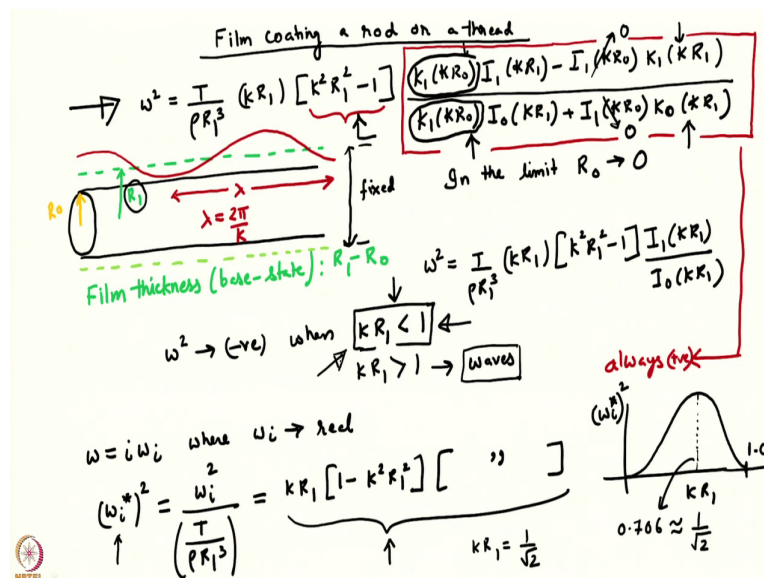 Film coating a rod or a thread
ω² = T/ρR₁³ (kR₁) [k²R₁² - 1] K₁(kR₀) I₁(kR₁) - I₁(kR₀) K₁(kR₁) / K₁(kR₀) I₀(kR₁) + I₁(kR₀) K₀(kR₁)
0
0
In the limit R₀ → 0
R₀
R₁
λ
λ = 2π/k
fixed
Film thickness (base-state): R₁ - R₀
ω² = T/ρR₁³ (kR₁) [k²R₁² - 1] I₁(kR₁)/I₀(kR₁)
ω² → (-ve) when kR₁ < 1
kR₁ > 1 → waves
always (+ve)
ω = i ωᵢ where ωᵢ → real
(ωᵢ*)² = ωᵢ²/(T/ρR₁³) = kR₁ [1 - k²R₁²] [ " ]
kR₁ = 1/√2
(ωᵢ*)²
kR₁
0.706 ≈ 1/√2
NPTEL